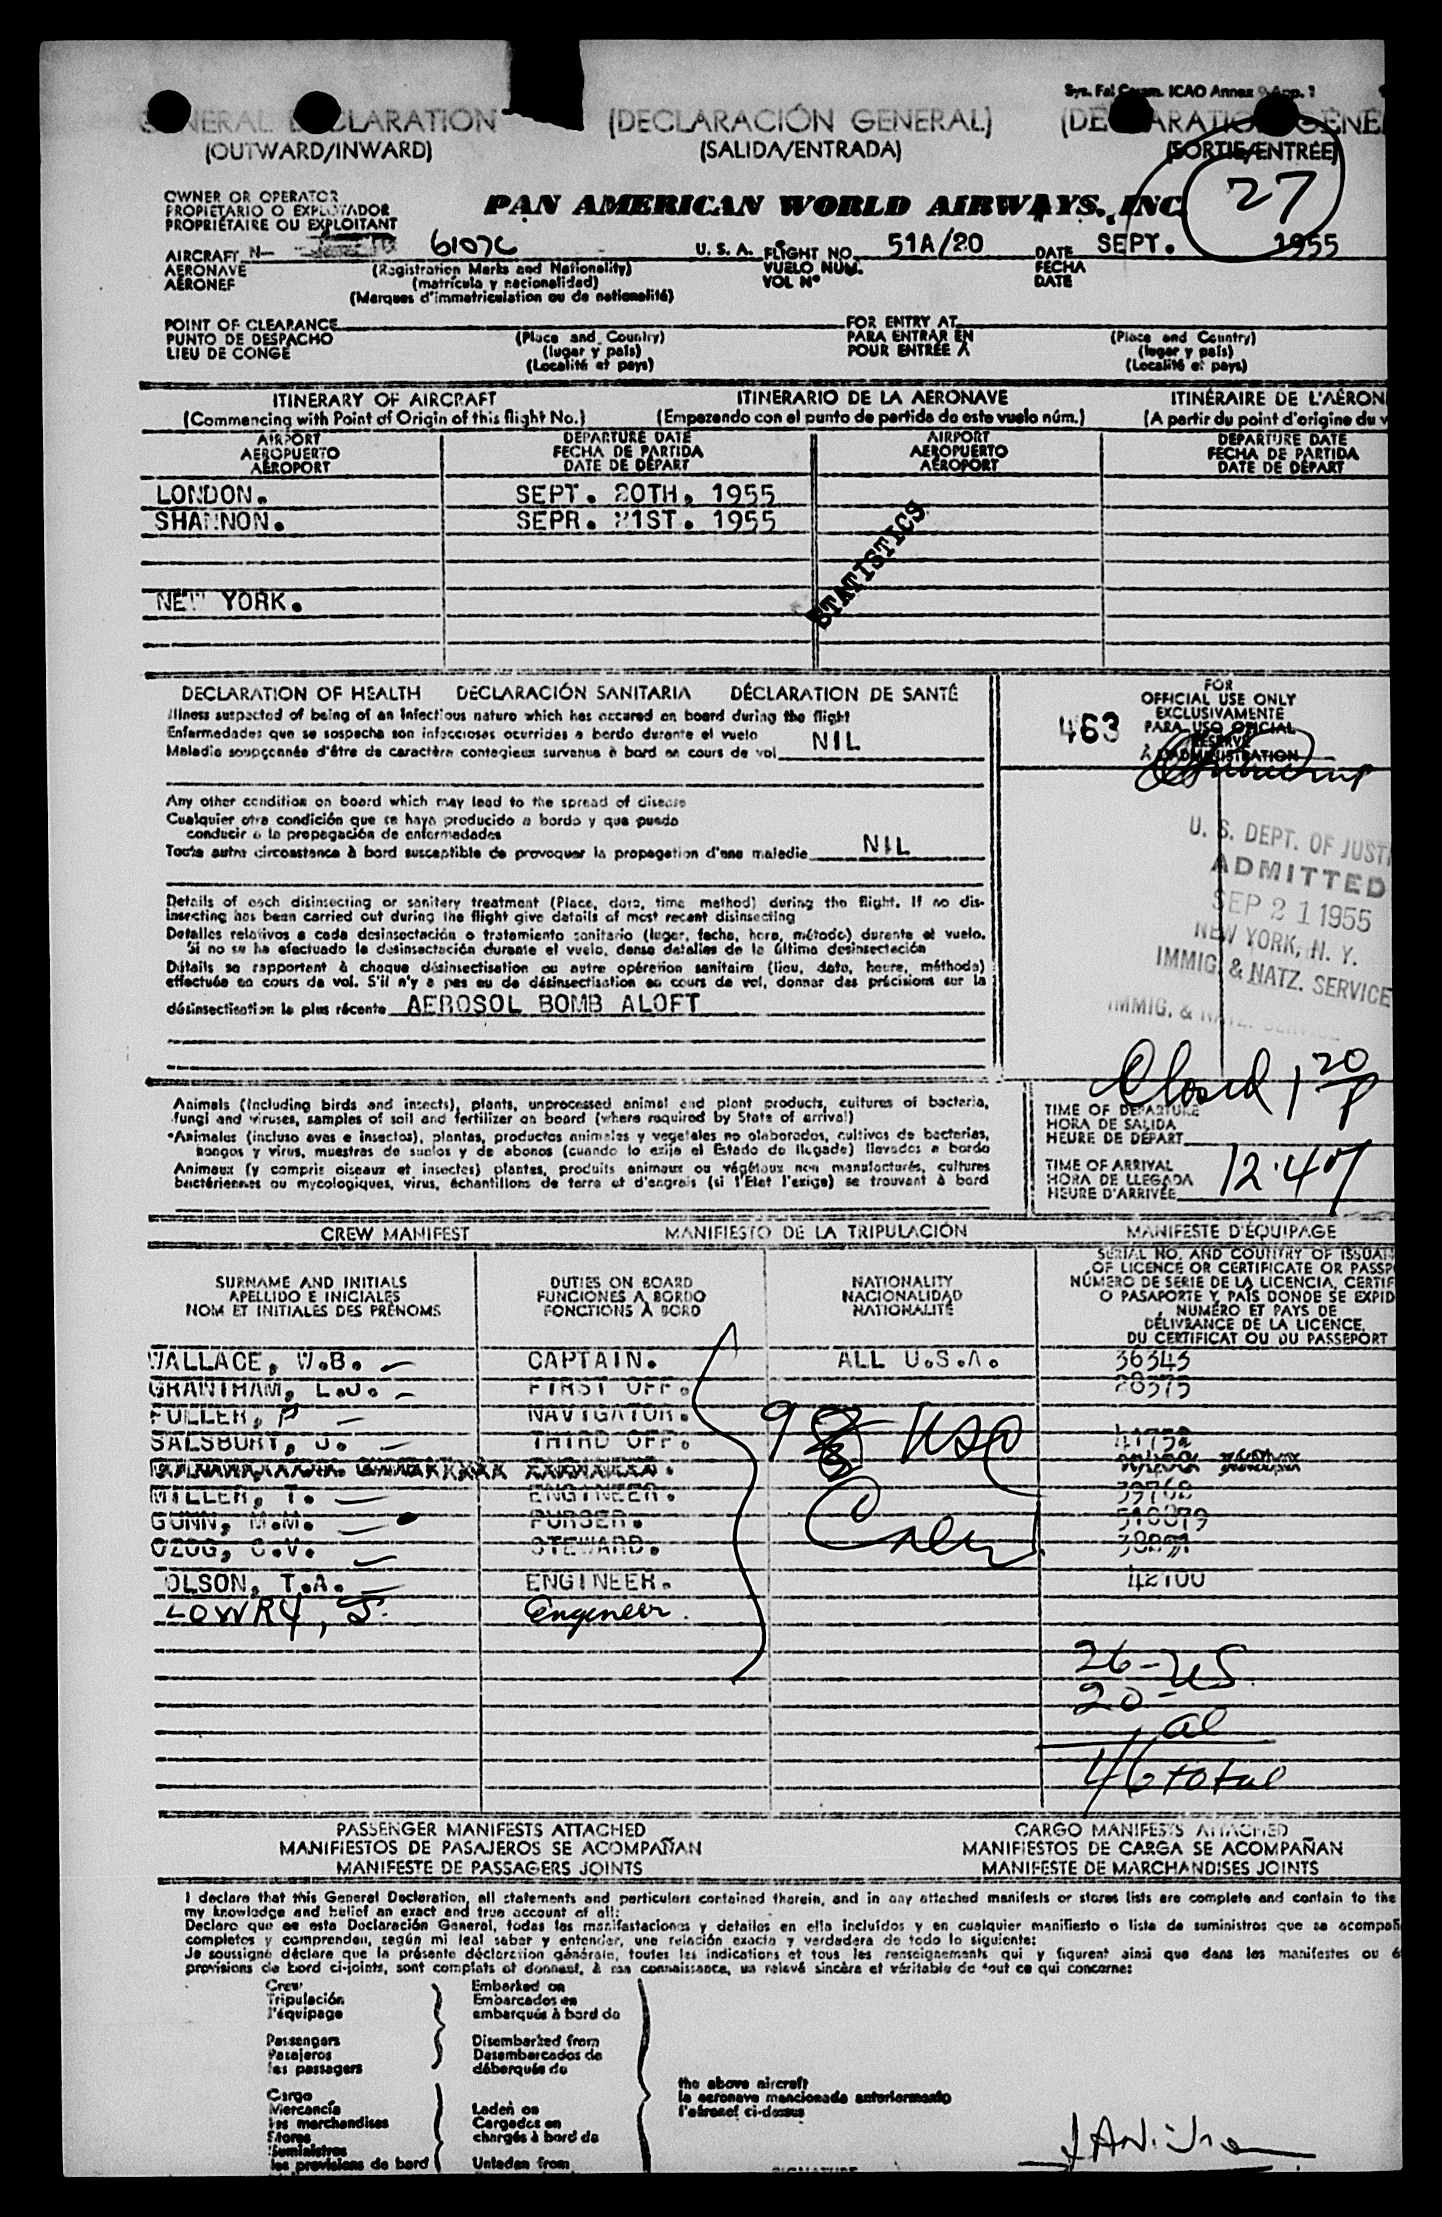 Sys. Fal Comm. ICAO Annex 9 App. 1
GENERAL DECLARATION (DECLARACIÓN GENERAL) (DÉCLARATION GÉNÉ
(OUTWARD/INWARD) (SALIDA/ENTRADA) (SORTIE/ENTRÉE)
27
OWNER OR OPERATOR
PROPIETARIO O EXPLOTADOR
PROPRIÉTAIRE OU EXPLOITANT
PAN AMERICAN WORLD AIRWAYS, INC.
AIRCRAFT N- 6107C U. S. A. FLIGHT NO. 51A/20 DATE SEPT. 1955
AERONAVE (Registration Marks and Nationality) VUELO NÚM. FECHA
AÉRONEF (matrícula y nacionalidad) VOL Nº DATE
(Marques d'immatriculation ou de nationalité)
POINT OF CLEARANCE FOR ENTRY AT
PUNTO DE DESPACHO (Place and Country) PARA ENTRAR EN (Place and Country)
LIEU DE CONGÉ (lugar y país) POUR ENTRÉE À (lugar y país)
(Localité et pays) (Localité et pays)
ITINERARY OF AIRCRAFT ITINERARIO DE LA AERONAVE ITINÉRAIRE DE L'AÉRON
(Commencing with Point of Origin of this flight No.) (Empezando con el punto de partida de este vuelo núm.) (A partir du point d'origine du v
AIRPORT DEPARTURE DATE AIRPORT DEPARTURE DATE
AEROPUERTO FECHA DE PARTIDA AEROPUERTO FECHA DE PARTIDA
AÉROPORT DATE DE DÉPART AÉROPORT DATE DE DÉPART
LONDON. SEPT. 20TH, 1955
SHANNON. SEPR. 21ST. 1955
STATISTICS
NEW YORK.
DECLARATION OF HEALTH DECLARACIÓN SANITARIA DÉCLARATION DE SANTÉ
Illness suspected of being of an infectious nature which has occured on board during the flight
Enfermedades que se sospecha son infecciosas ocurridas a bordo durante el vuelo
Maladie soupçonnée d'être de caractère contagieux survenue à bord en cours de vol NIL
Any other condition on board which may lead to the spread of disease
Cualquier otra condición que se haya producido a bordo y que pueda
conducir a la propagación de enfermedades
Toute autre circonstance à bord susceptible de provoquer la propagation d'une maladie NIL
Details of each disinsecting or sanitary treatment (Place, date, time method) during the flight. If no dis-
insecting has been carried out during the flight give details of most recent disinsecting
Detalles relativos a cada desinsectación o tratamiento sanitario (lugar, fecha, hora, método) durante el vuelo.
Si no se ha efectuado la desinsectación durante el vuelo, dense detalles de la última desinsectación
Détails se rapportant à chaque désinsectisation ou autre opération sanitaire (lieu, date, heure, méthode)
effectuée en cours de vol. S'il n'y a pas eu de désinsectisation en cours de vol, donner des précisions sur la
désinsectisation la plus récente AEROSOL BOMB ALOFT
463
FOR
OFFICIAL USE ONLY
EXCLUSIVAMENTE
PARA USO OFICIAL
RÉSERVÉ
À L'ADMINISTRATION
U. S. DEPT. OF JUSTI
ADMITTED
SEP 21 1955
NEW YORK, N. Y.
IMMIG. & NATZ. SERVICE
IMMIG. &
Closed 1 20 P
Animals (including birds and insects), plants, unprocessed animal and plant products, cultures of bacteria,
fungi and viruses, samples of soil and fertilizer on board (where required by State of arrival)
*Animales (incluso aves e insectos), plantas, productos animales y vegetales no elaborados, cultivos de bacterias,
hongos y virus, muestras de suelos y de abonos (cuando lo exija el Estado de llegada) llevados a bordo
Animaux (y compris oiseaux et insectes) plantes, produits animaux ou végétaux non manufacturés, cultures
bactériennes ou mycologiques, virus, échantillons de terre et d'engrais (si l'Etat l'exige) se trouvant à bord
TIME OF DEPARTURE
HORA DE SALIDA
HEURE DE DÉPART
TIME OF ARRIVAL
HORA DE LLEGADA
HEURE D'ARRIVÉE 12:47
CREW MANIFEST MANIFIESTO DE LA TRIPULACIÓN MANIFESTE D'ÉQUIPAGE
SURNAME AND INITIALS DUTIES ON BOARD NATIONALITY
APELLIDO E INICIALES FUNCIONES A BORDO NACIONALIDAD
NOM ET INITIALES DES PRÉNOMS FONCTIONS À BORD NATIONALITÉ
SERIAL NO. AND COUNTRY OF ISSUAN
OF LICENCE OR CERTIFICATE OR PASSP
NÚMERO DE SERIE DE LA LICENCIA, CERTIF
O PASAPORTE Y PAÍS DONDE SE EXPID
NUMÉRO ET PAYS DE
DÉLIVRANCE DE LA LICENCE,
DU CERTIFICAT OU DU PASSEPORT
WALLACE, W.B. CAPTAIN. ALL U.S.A. 36343
GRANTHAM, L.J. FIRST OFF. 28375
FULLER, P NAVIGATOR.
SALSBURY, J. THIRD OFF. 41752
MILLER, T. ENGINEER. 39768
GUNN, M.M. PURSER. 510879
OZUG, C.V. STEWARD.
OLSON, T.A. ENGINEER. 42100
LOWRY, J. Engineer.
9 USC
Crew
26-US
20-al
46 total
PASSENGER MANIFESTS ATTACHED CARGO MANIFESTS ATTACHED
MANIFIESTOS DE PASAJEROS SE ACOMPAÑAN MANIFIESTOS DE CARGA SE ACOMPAÑAN
MANIFESTE DE PASSAGERS JOINTS MANIFESTE DE MARCHANDISES JOINTS
I declare that this General Declaration, all statements and particulars contained therein, and in any attached manifests or stores lists are complete and contain to the
my knowledge and belief an exact and true account of all:
Declaro que en esta Declaración General, todas las manifestaciones y detalles en ella incluídos y en cualquier manifiesto o lista de suministros que se acompañ
completos y comprenden, según mi leal saber y entender, una relación exacta y verdadera de todo lo siguiente:
Je soussigné déclare que la présente déclaration générale, toutes les indications et tous les renseignements qui y figurent ainsi que dans les manifestes ou é
provisions de bord ci-joints, sont complets et donnent, à ma connaissance, un relevé sincère et véritable de tout ce qui concerne:
Crew Embarked on
Tripulación Embarcados en
l'équipage embarqués à bord de
Passengers Disembarked from
Pasajeros Desembarcados de
les passagers débarqués de
the above aircraft
la aeronave mencionada anteriormente
l'aéronef ci-dessus
Cargo
Mercancía Laden on
les marchandises Cargados en
Stores chargés à bord de
Suministros
les provisions de bord Unladen from
SIGNATURE